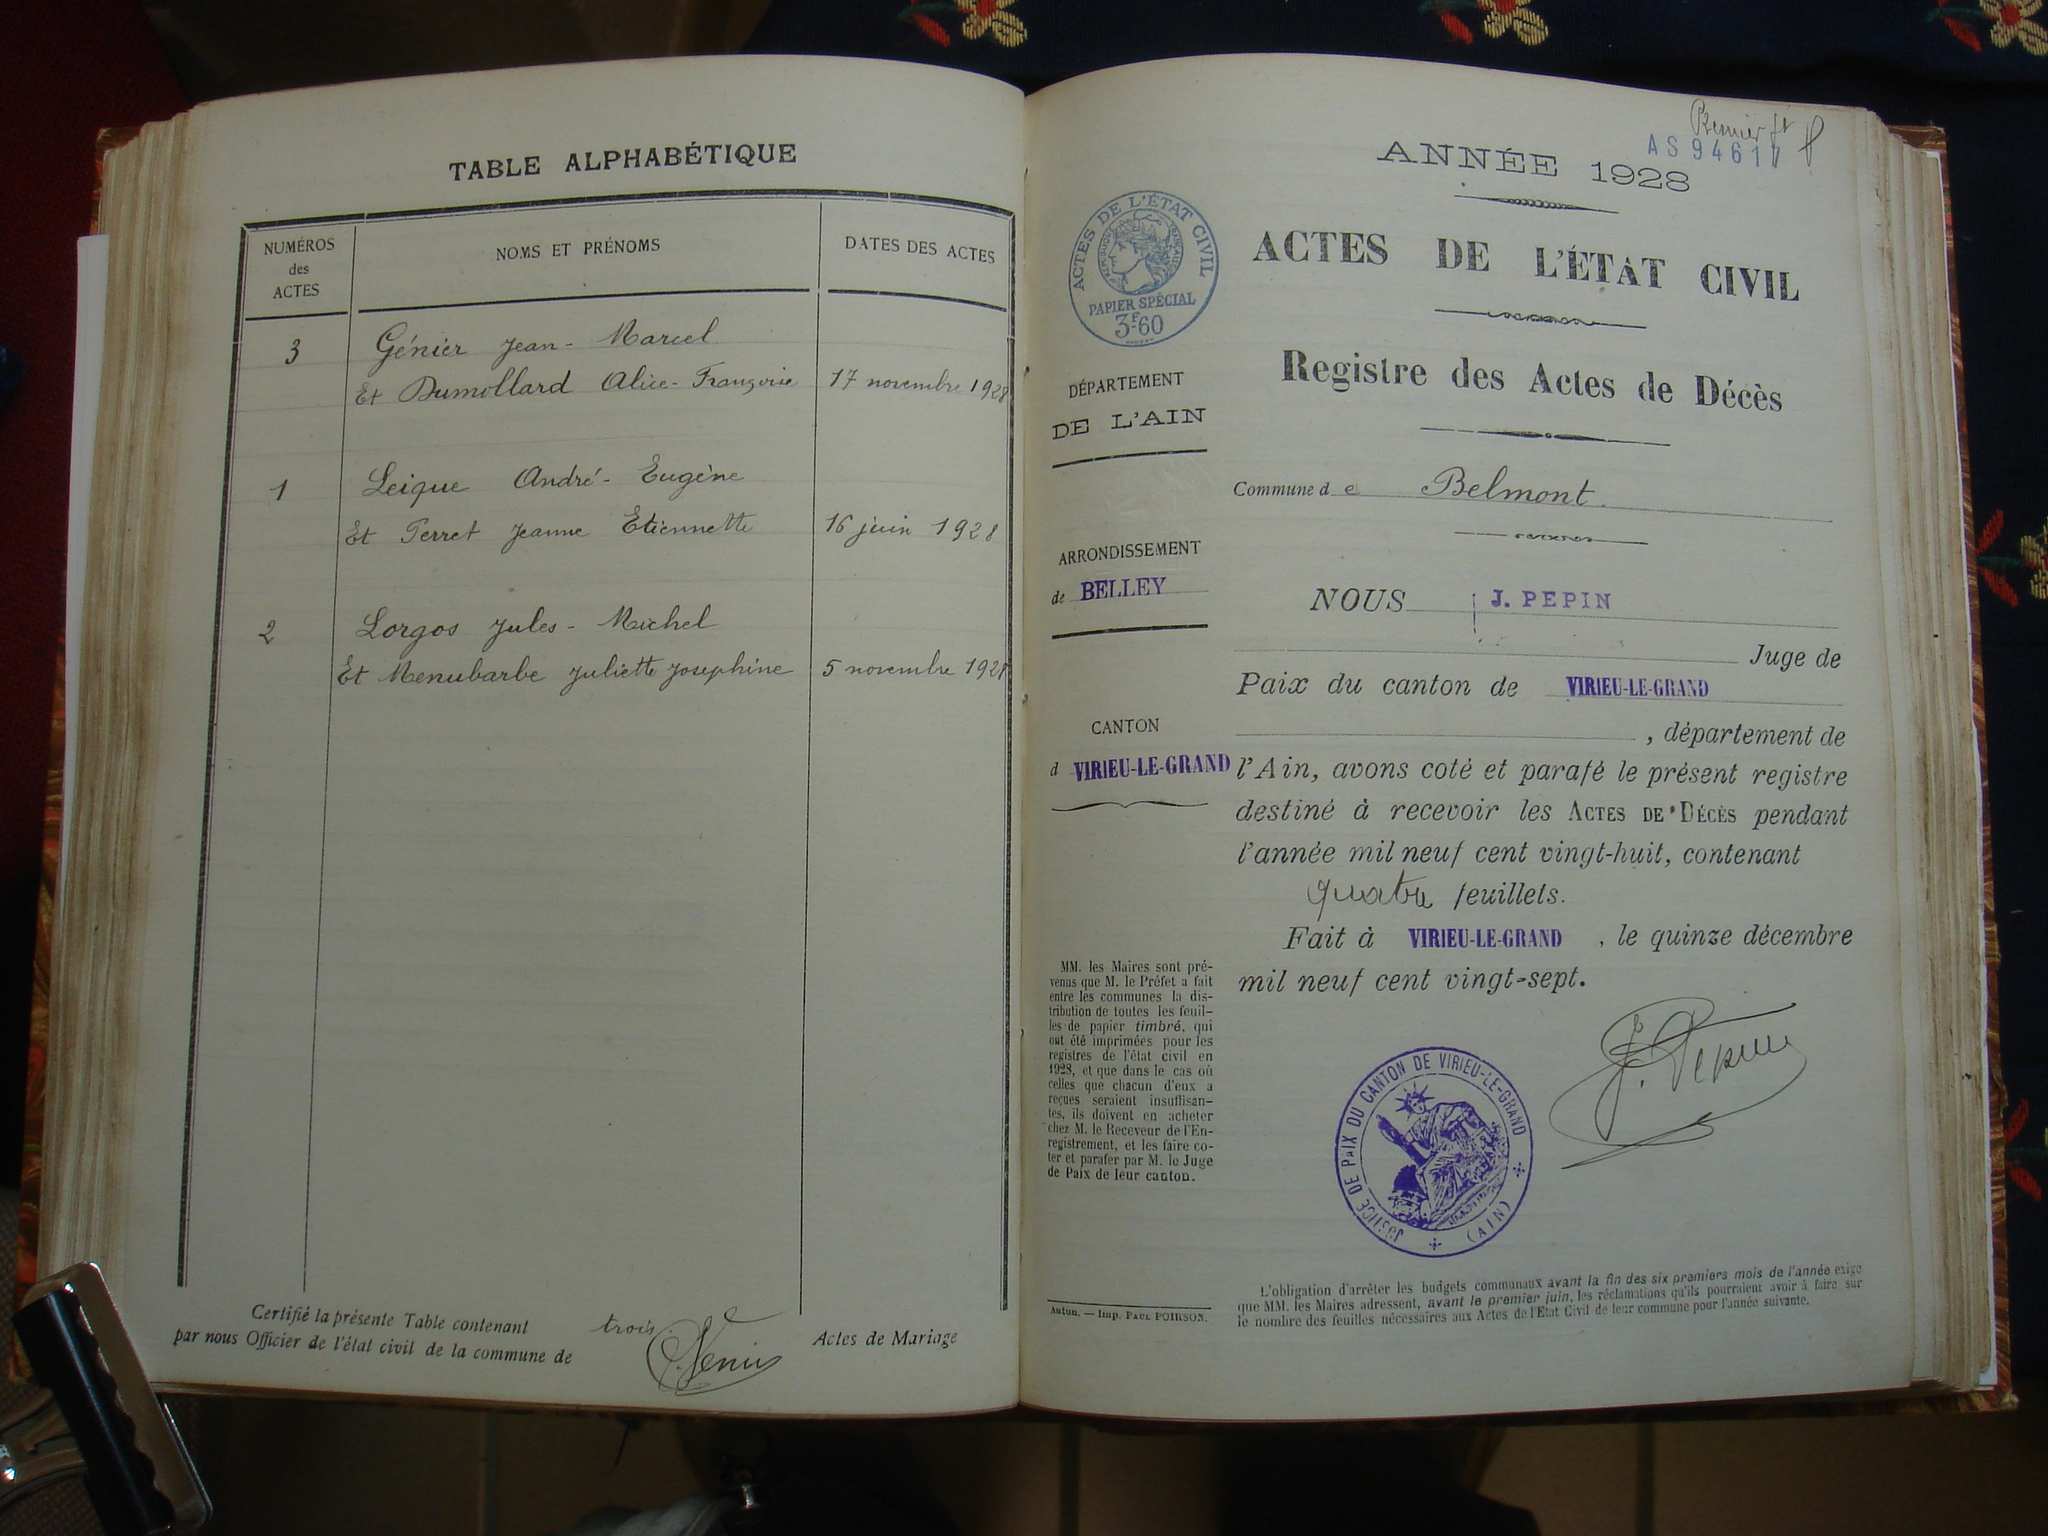 TABLE ALPHABÉTIQUE
NUMÉROS des ACTES
NOMS ET PRÉNOMS
DATES DES ACTES
3 Génier Jean-Marcel
Et Dumollard Alice-Françoise 17 novembre 1928
1 Leique André-Eugène
Et Perret Jeanne Etiennette 16 juin 1928
2 Lorgos Jules-Michel
Et Menubarbe Juliette Josephine 5 novembre 1928
Certifié la présente Table contenant trois Actes de Mariage
par nous Officier de l'état civil de la commune de
Premier
AS 94617
ANNÉE 1928
ACTES DE L'ÉTAT CIVIL
PAPIER SPÉCIAL
3F60
ACTES DE L'ÉTAT CIVIL
Registre des Actes de Décès
DÉPARTEMENT
DE L'AIN
Commune de Belmont.
ARRONDISSEMENT
de BELLEY
NOUS J. PEPIN
Juge de
Paix du canton de VIRIEU-LE-GRAND
CANTON
d VIRIEU-LE-GRAND
, département de
l'Ain, avons coté et parafé le présent registre
destiné à recevoir les ACTES DE DÉCÈS pendant
l'année mil neuf cent vingt-huit, contenant
quatre feuillets.
Fait à VIRIEU-LE-GRAND, le quinze décembre
mil neuf cent vingt-sept.
J. Pepin
MM. les Maires sont pré-
venus que M. le Préfet a fait
entre les communes la dis-
tribution de toutes les feuil-
les de papier timbré, qui
ont été imprimées pour les
registres de l'état civil en
1928, et que dans le cas où
celles que chacun d'eux a
reçues seraient insuffisan-
tes, ils doivent en acheter
chez M. le Receveur de l'En-
registrement, et les faire co-
ter et parafer par M. le Juge
de Paix de leur canton.
JUSTICE DE PAIX DU CANTON DE VIRIEU-LE-GRAND
(AIN)
Autun. — Imp. PAUL POIRSON.
L'obligation d'arrêter les budgets communaux avant la fin des six premiers mois de l'année exige
que MM. les Maires adressent, avant le premier juin, les réclamations qu'ils pourraient avoir à faire sur
le nombre des feuilles nécessaires aux Actes de l'Etat Civil de leur commune pour l'année suivante.